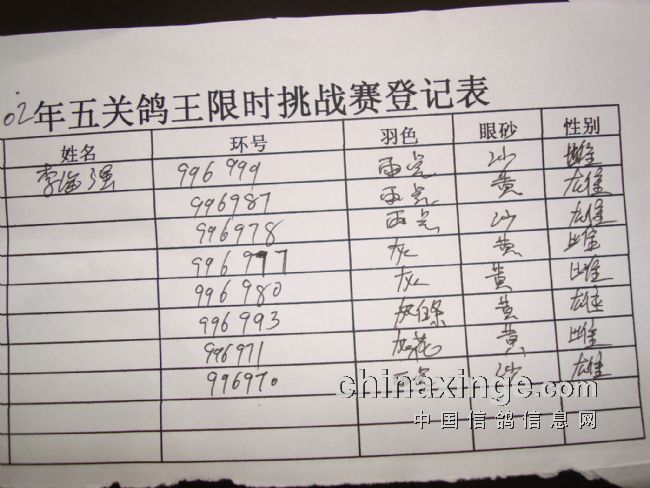 02年五关鸽王限时挑战赛登记表
姓名 环号 羽色 眼砂 性别
李海强 996999 雨点 沙 雌
996987 雨点 黄 雄
996978 雨点 沙 雄
996997 灰 黄 雌
996980 灰 黄 雌
996993 灰白条 黄 雄
996971 灰花 黄 雌
996970 雨点 沙 雄
chinaxinge.com
中国信鸽信息网